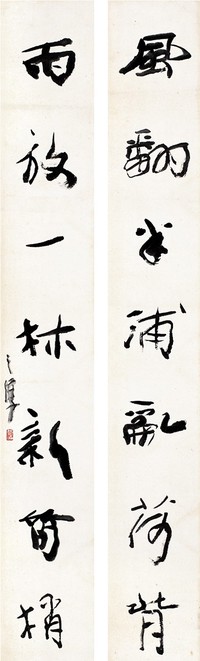 風翻半浦亂荷背
雨放一林新筍梢